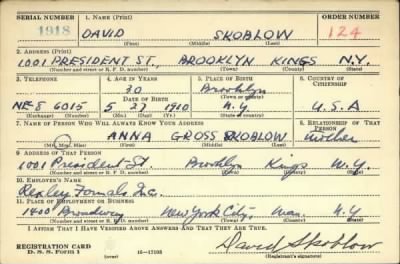 SERIAL NUMBER 1. NAME (Print) ORDER NUMBER
1918 DAVID SKOBLOW 124
(First) (Middle) (Last)
2. ADDRESS (Print)
1001 PRESIDENT ST., BROOKLYN KINGS N.Y.
(Number and street or R. F. D. number) (Town) (County) (State)
3. TELEPHONE 4. AGE IN YEARS 5. PLACE OF BIRTH 6. COUNTRY OF CITIZENSHIP
30 Brooklyn
DATE OF BIRTH (Town or county)
NE-8 6015 5 27 1910 N.Y. U.S.A
(Exchange) (Number) (Mo.) (Day) (Yr.) (State or country)
7. NAME OF PERSON WHO WILL ALWAYS KNOW YOUR ADDRESS 8. RELATIONSHIP OF THAT PERSON
ANNA GROSS SKOBLOW Mother
(Mr., Mrs., Miss) (First) (Middle) (Last)
9. ADDRESS OF THAT PERSON
1001 President St Brooklyn Kings N.Y.
(Number and street or R. F. D. number) (Town) (County) (State)
10. EMPLOYER'S NAME
Inc.
11. PLACE OF EMPLOYMENT OR BUSINESS
1400 Broadway New York City, Man. N.Y
(Number and street or R. F. D. number) (Town) (County) (State)
I AFFIRM THAT I HAVE VERIFIED ABOVE ANSWERS AND THAT THEY ARE TRUE.
REGISTRATION CARD
D. S. S. Form 1 (over) 16—17105 David Skoblow
(Registrant's signature)